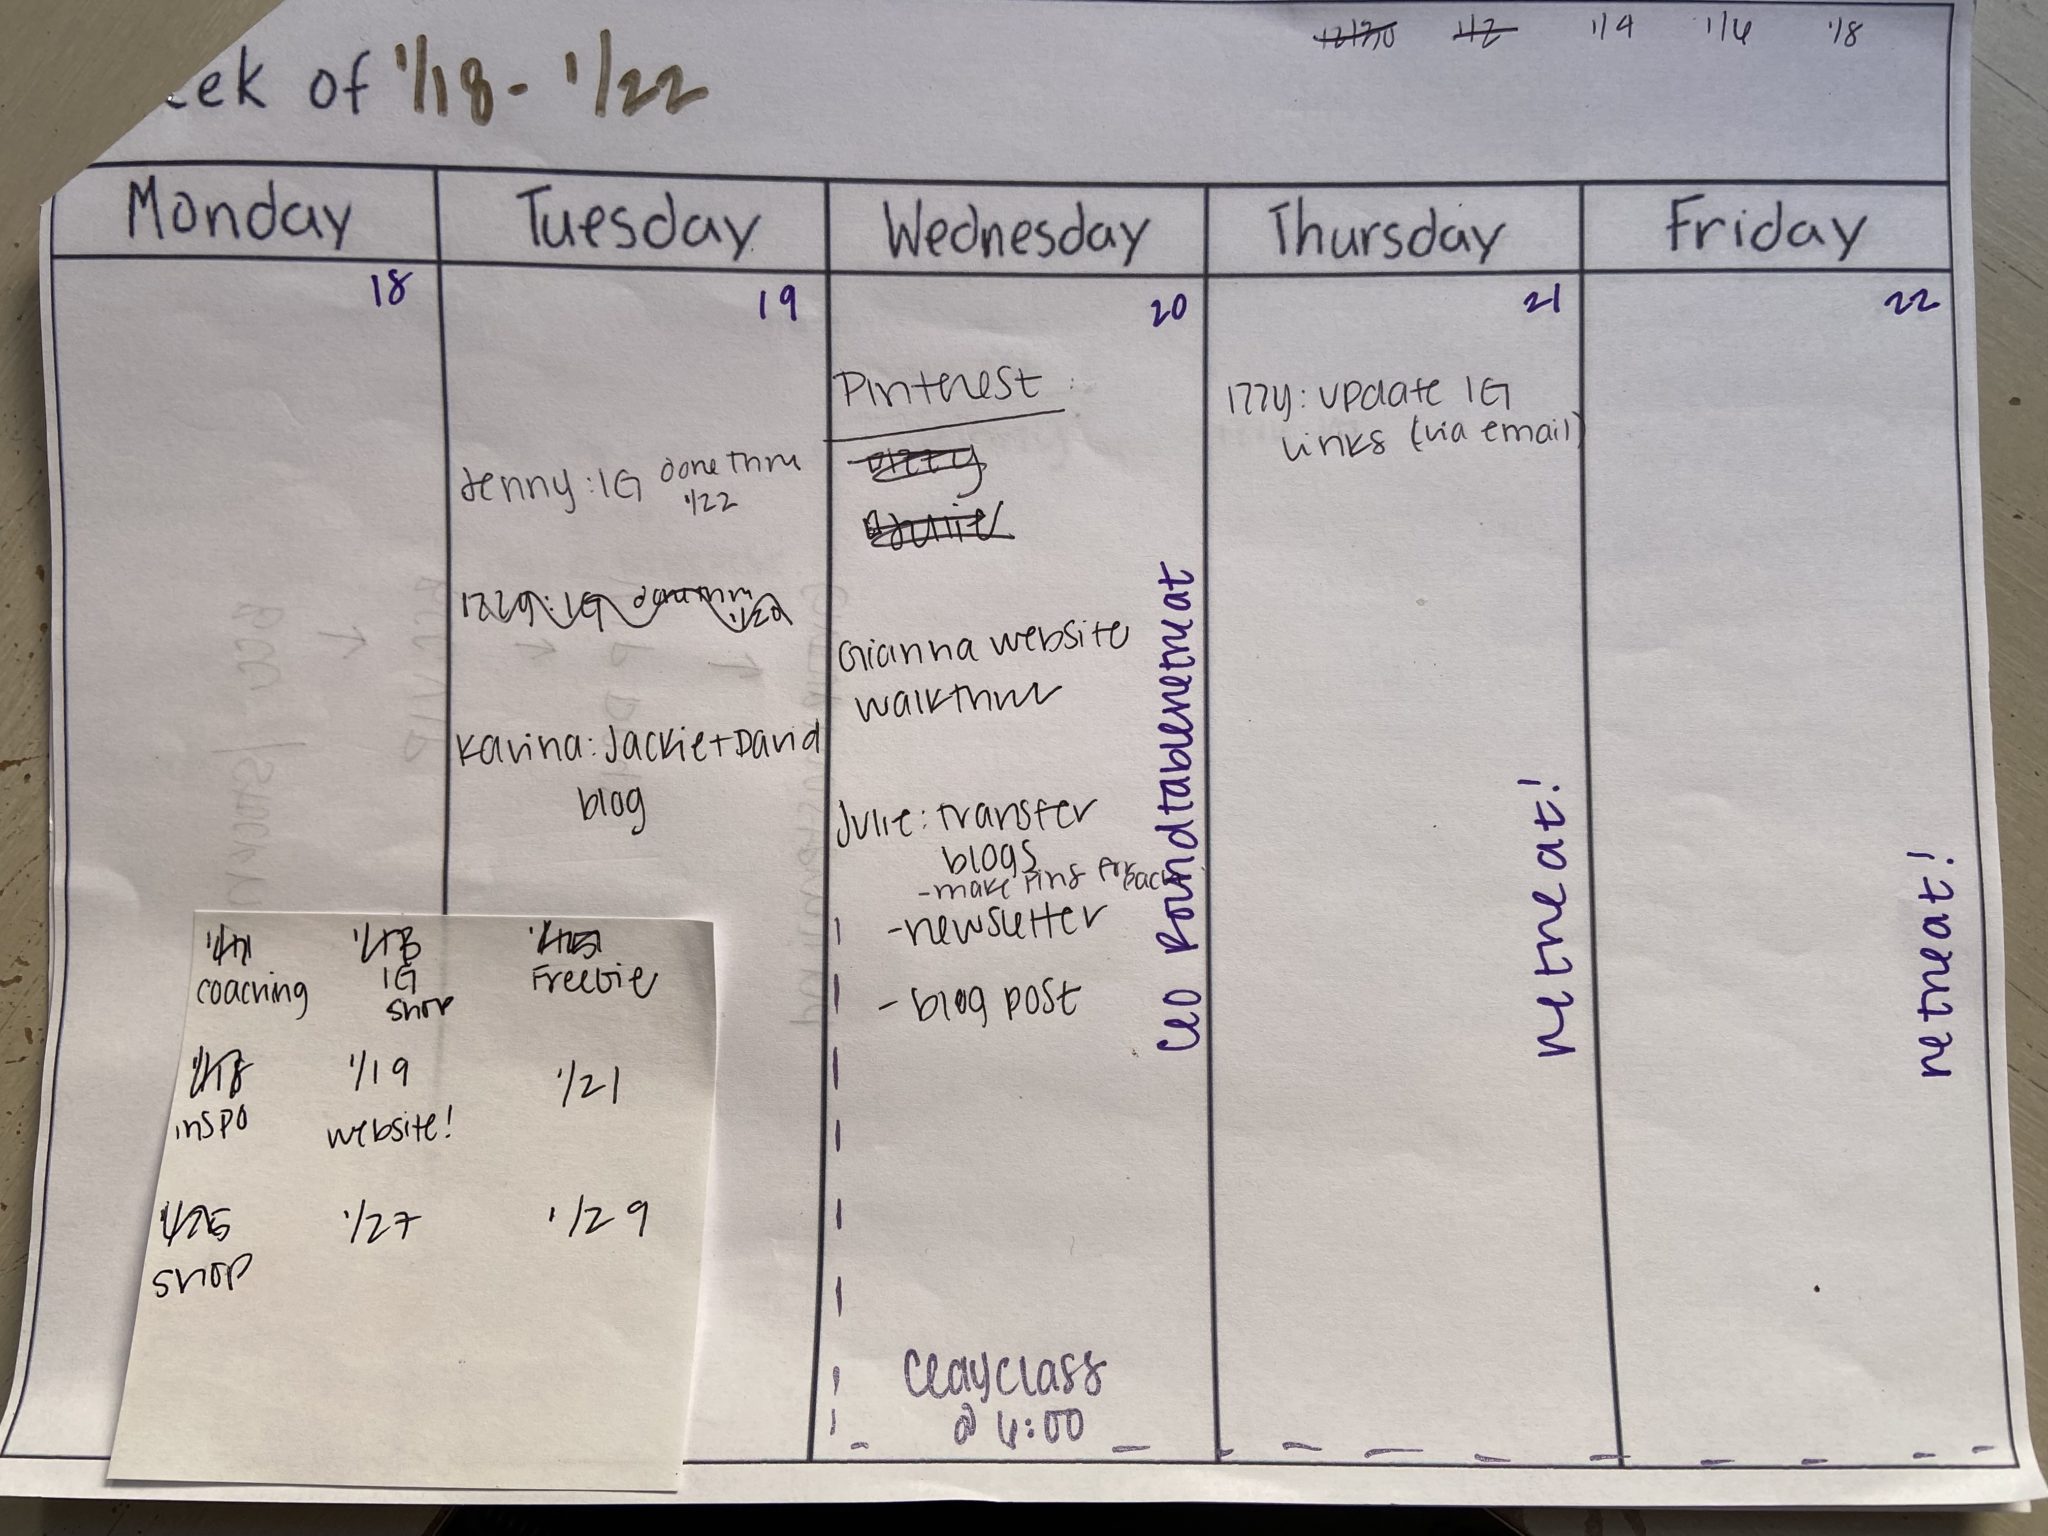 eek of 1/18 - 1/22
12/30 1/2 1/4 1/6 1/8
Monday Tuesday Wednesday Thursday Friday
18
19
Jenny: IG done thru
1/22
Izzy: IG done thru
1/29
Karina: Jackie + David
blog
20
Pinterest:
Izzy
Julie
Gianna website
walkthru
Julie: transfer
blogs
- make pins for each
- newsletter
- blog post
CEO Roundtable retreat
clay class
@ 6:00
21
Izzy: update IG
links (via email)
retreat!
22
retreat!
1/11 1/13 1/15
coaching IG Freebie
shop
1/18 1/19 1/21
inspo website!
1/25 1/27 1/29
shop